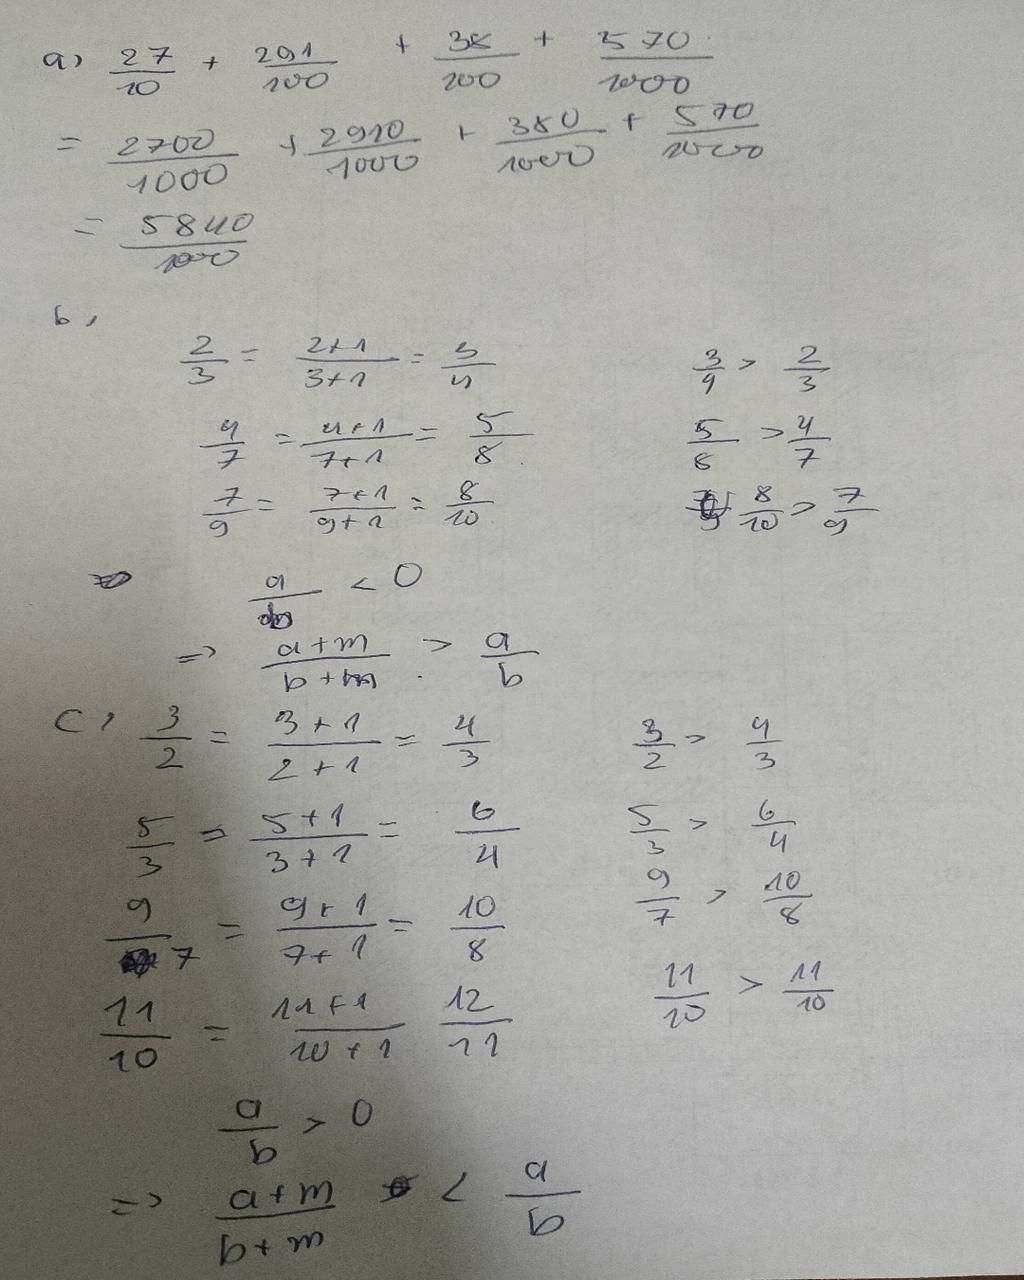 a) 27/10 + 291/100 + 38/100 + 570/1000
= 2700/1000 + 2910/1000 + 380/1000 + 570/1000
= 5840/1000
b,
2/3 = 2+1/3+1 = 3/4 3/4 > 2/3
4/7 = 4+1/7+1 = 5/8 5/8 > 4/7
7/9 = 7+1/9+1 = 8/10 8/10 > 7/9
a/b < 0
=> a+m/b+m > a/b
c, 3/2 = 3+1/2+1 = 4/3 3/2 > 4/3
5/3 = 5+1/3+1 = 6/4 5/3 > 6/4
9/7 = 9+1/7+1 = 10/8 9/7 > 10/8
11/10 = 11+1/10+1 12/11 11/10 > 11/10
a/b > 0
=> a+m/b+m < a/b